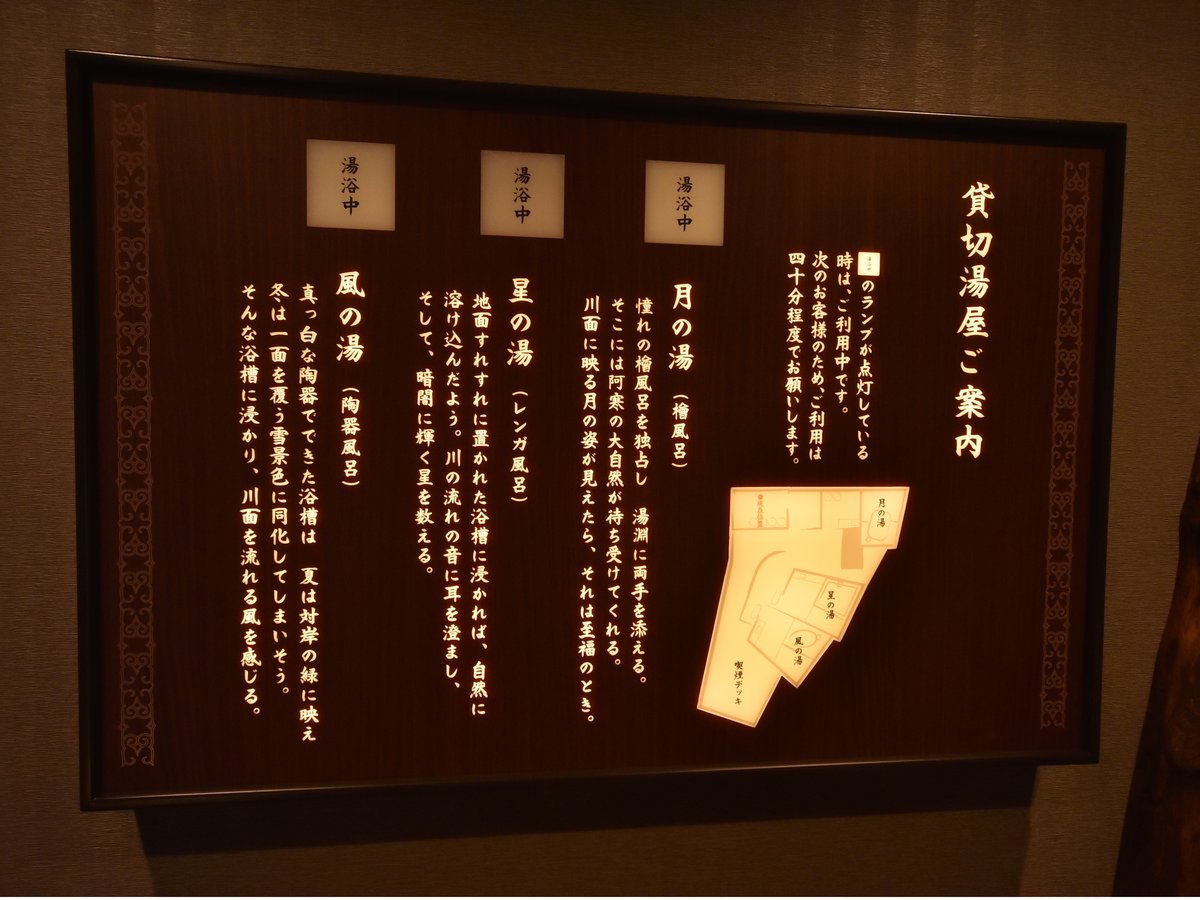 貸切湯屋ご案内
のランプが点灯している
時は、ご利用中です。
次のお客様のため、ご利用は
四十分程度でお願いします。
月の湯
星の湯
風の湯
喫煙デッキ
湯浴中
月の湯（檜風呂）
憧れの檜風呂を独占し　湯淵に両手を添える。
そこには阿寒の大自然が待ち受けてくれる。
川面に映る月の姿が見えたら、それは至福のとき。
湯浴中
星の湯（レンガ風呂）
地面すれすれに置かれた浴槽に浸かれば、自然に
溶け込んだよう。川の流れの音に耳を澄まし、
そして、暗闇に輝く星を数える。
湯浴中
風の湯（陶器風呂）
真っ白な陶器でできた浴槽は　夏は対岸の緑に映え
冬は一面を覆う雪景色に同化してしまいそう。
そんな浴槽に浸かり、川面を流れる風を感じる。